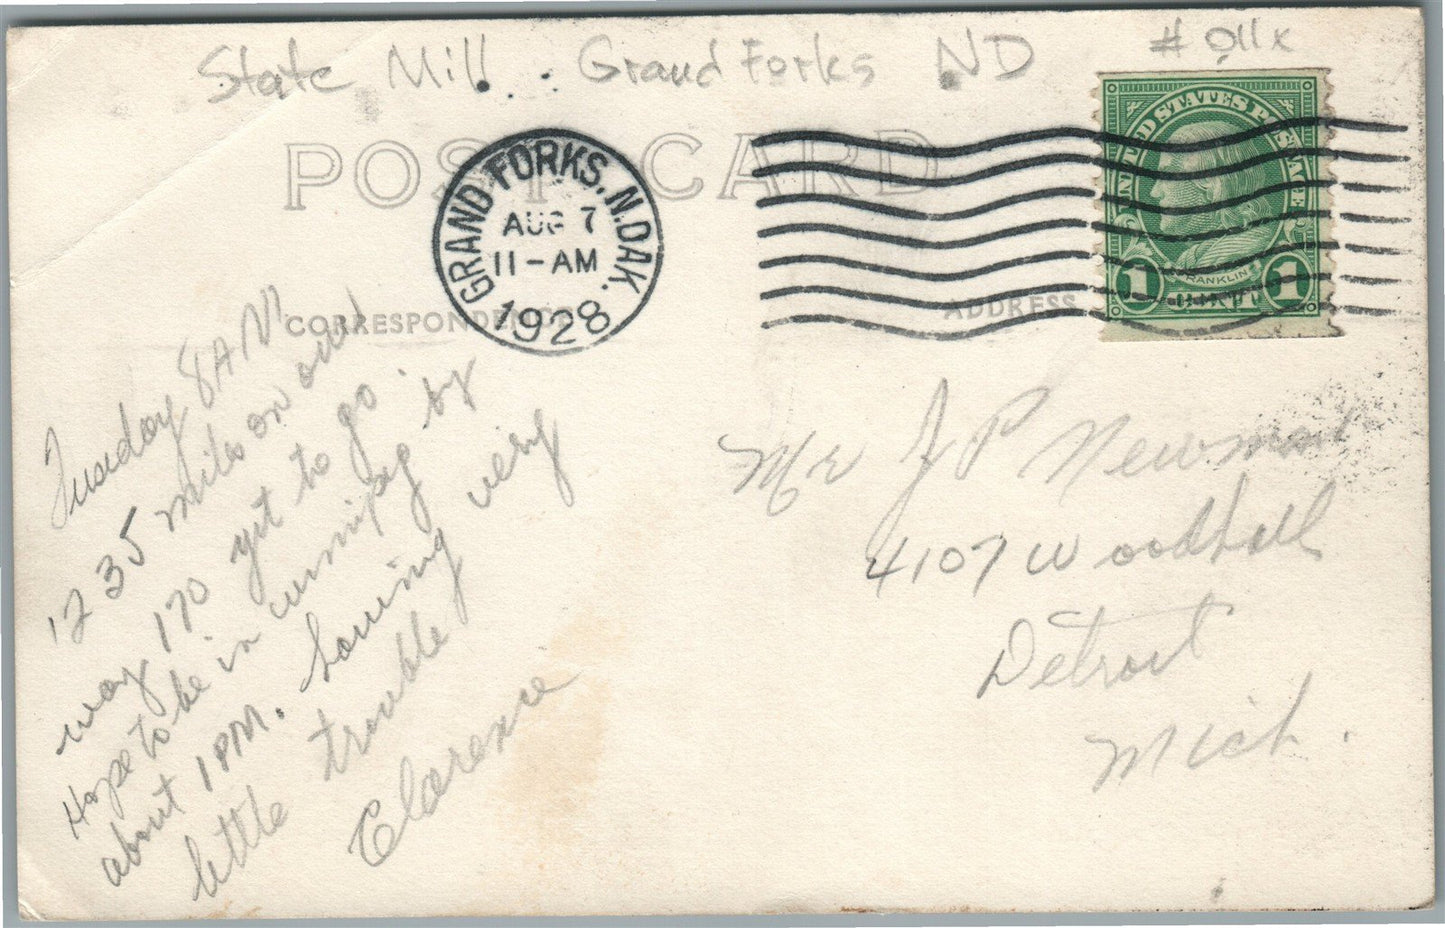 State Mill. Grand Forks ND # 011x
POST CARD
GRAND FORKS, N.DAK.
AUG 7
11-AM
1928
UNITED STATES POSTAGE
FRANKLIN
1 1
CORRESPONDENCE
ADDRESS
Tuesday 8 AM
1235 miles on our
way 170 yet to go
Hope to be in winnipeg by
about 1 PM. having very
little trouble
Clarence
Mr J P Newman
4107 Woodhall
Detroit
Mich.